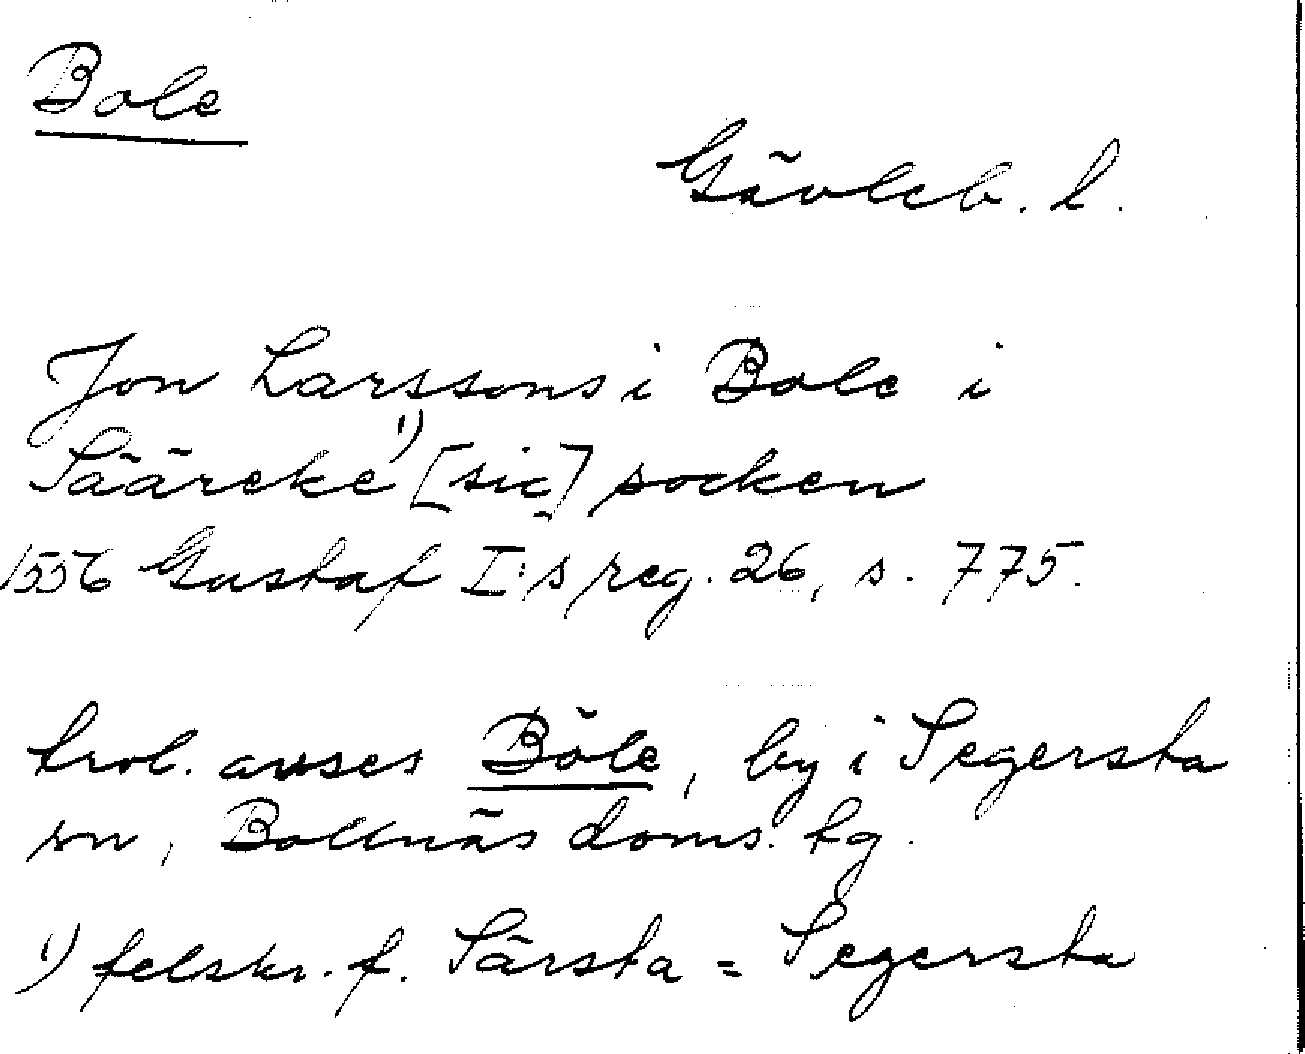 Bole
Gävleb. l.
Jon Larssons i Bole i
Sääreke¹⁾ [sic] socken
1556 Gustaf I:s reg. 26, s. 775.
trol. avses Böle, by i Segersta
sn, Bollnäs doms. tg.
¹⁾ felskr. f. Särsta = Segersta